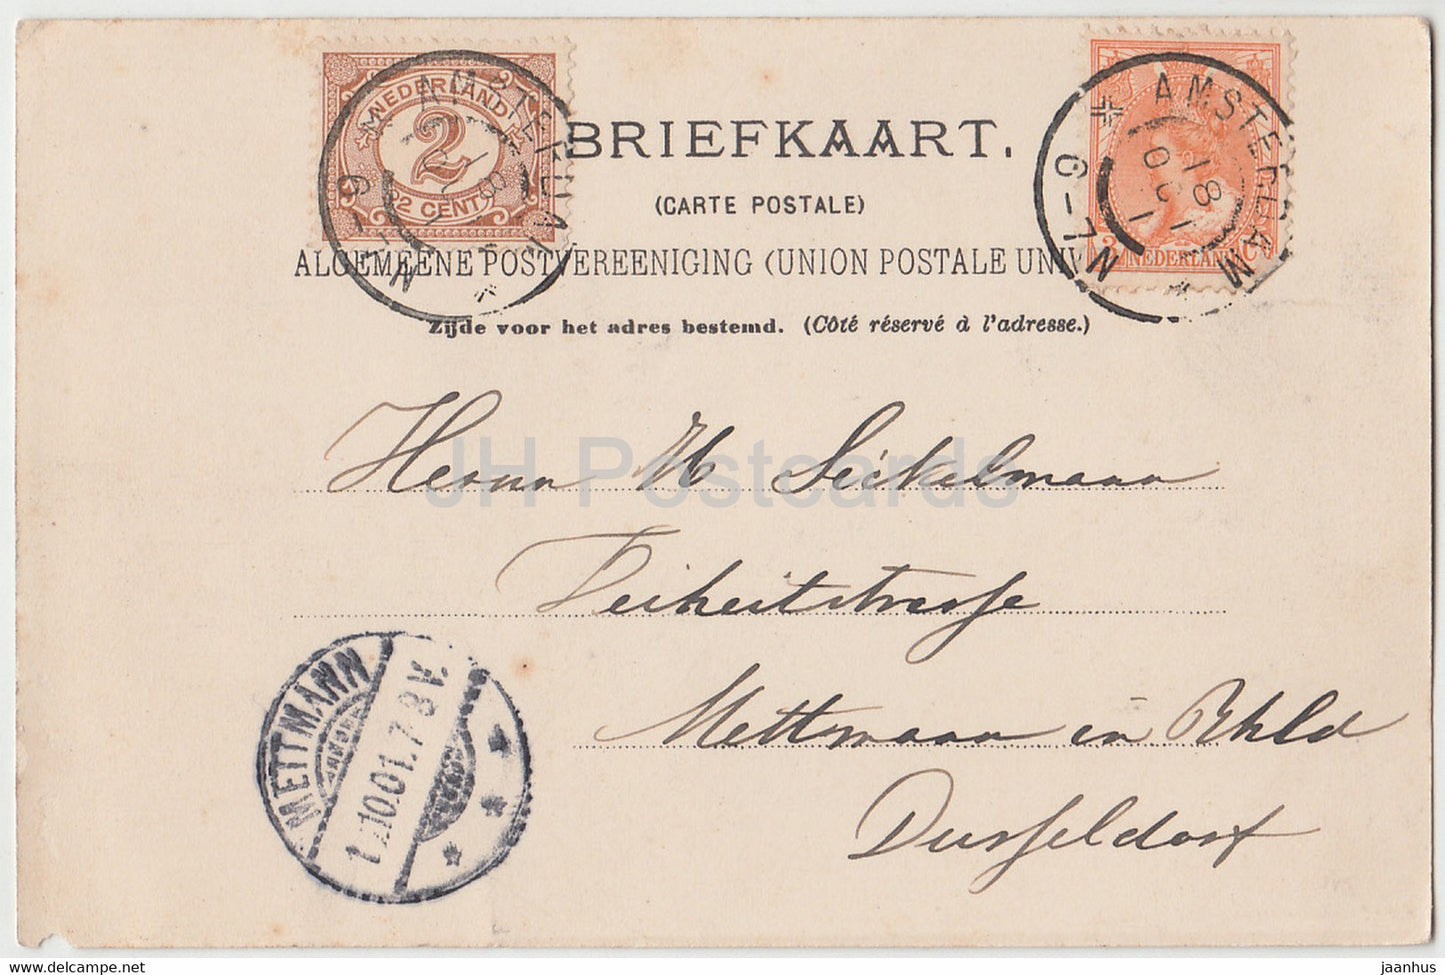 NEDERLAND
2
2 CENT
AMSTERDAM
BRIEFKAART.
(CARTE POSTALE)
ALGEMEENE POSTVEREENIGING (UNION POSTALE UNIV
Zijde voor het adres bestemd. (Côté réservé à l'adresse.)
AMSTERDAM
6-7N
NEDERLAND
JH Postcards
Herrn H Seckelmann
Freiheitstrasse
Mettmann in Rhld
Dusseldorf
METTMANN
10.01.7-8V.
jaanhus